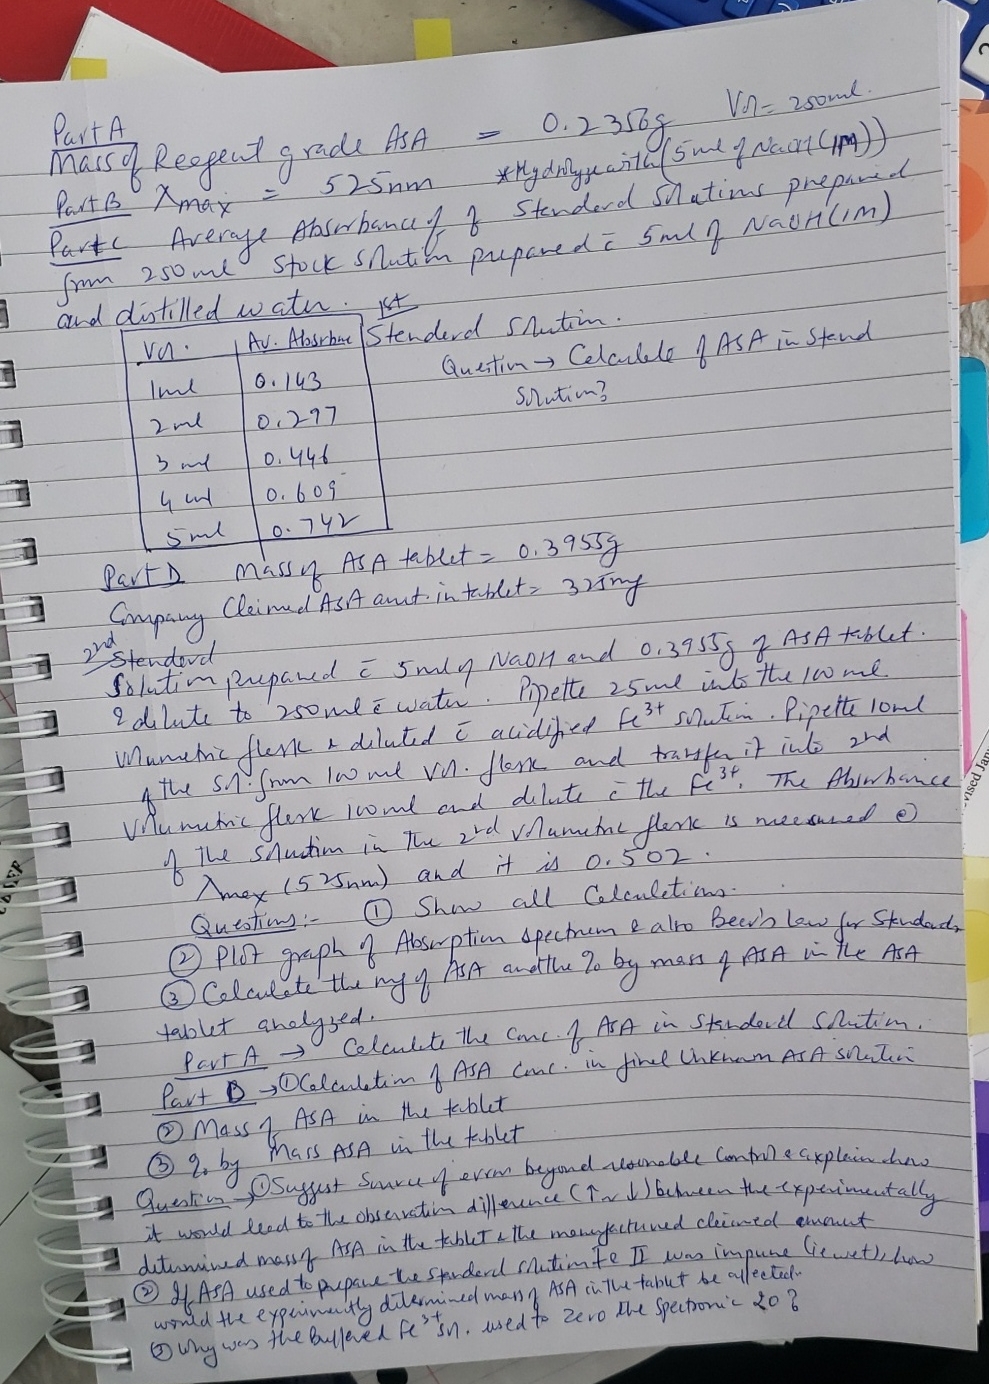 Part A
Mass of Reagent grade ASA = 0.2356g Vol = 250ml.
Part B λmax = 525nm *Hydrolyze with (5ml of NaOH (1M))
Part C Average Absorbance of Standard solutions prepared
from 250ml Stock solution prepared c̄ 5ml of NaOH (1M)
and distilled water. 1st
Vol. Av. Absrbne Standerd solution.
1ml 0.143 Question → Calculate of ASA in Stand
2ml 0.297 Solution?
3ml 0.446
4ml 0.609
5ml 0.742
Part D Mass of ASA tablet = 0.3955g
Company Claimed ASA amt. in tablet = 325mg
2nd Standard
Solution prepared c̄ 5ml of NaOH and 0.3955g of ASA tablet.
& dilute to 250ml c̄ water. Pipette 25ml into the 100ml
Volumetric flask & diluted c̄ acidified Fe3+ solution. Pipette 10ml
of the sol. from 100ml vol. flask and transfer it into 2nd
Volumetric flask 100ml and dilute c̄ the Fe3+. The Absorbance
of the solution in the 2nd volumetric flask is measured @
λmax (525nm) and it is 0.502.
Questions:- ① Show all Calculations.
② Plot graph of Absorption spectrum & also Beer's law for Standards
③ Calculate the mg of ASA and the % by mass of ASA in the ASA
tablet analyzed.
Part A → Calculate the conc. of ASA in standard solution.
Part D → ① Calculation of ASA conc. in final Unknown ASA solution
② Mass of ASA in the tablet
③ % by Mass ASA in the tablet
Question → ① Suggest source of error beyond resonable control & explain how
it would lead to the observation difference (↑ or ↓) between the experimentally
determined mass of ASA in the tablet & the manufactured claimed amount
② If ASA used to prepare the standard solution II was impure (ie wet), how
would the experimently ditermined mass of ASA in the tablet be affected.
③ Why was the buffered Fe3+ sol. used to zero the Spectronic 20?